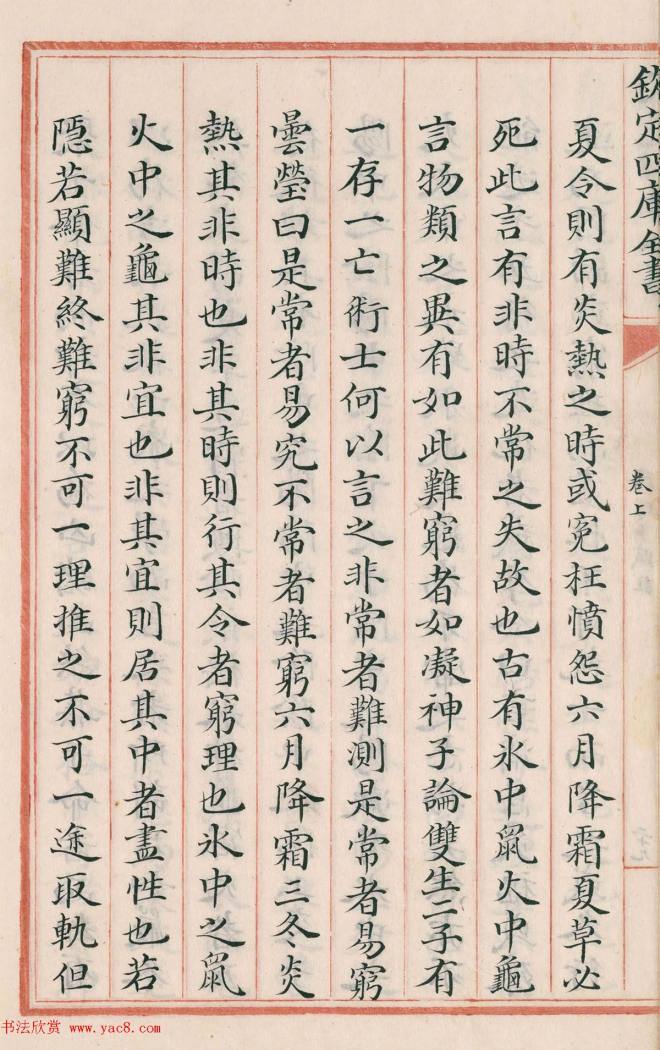 欽定四庫全書
卷上
夏令則有炎熱之時或寃枉憤怨六月降霜夏草必
死此言有非時不常之失故也古有氷中䑕火中龜
言物類之異有如此難窮者如凝神子論雙生二子有
一存一亡術士何以言之非常者難測是常者易窮
曇瑩曰是常者易究不常者難窮六月降霜三冬炎
熱其非時也非其時則行其令者窮理也氷中之䑕
火中之龜其非宜也非其宜則居其中者盡性也若
隱若顯難終難窮不可一理推之不可一途取軌但
书法欣赏 www.yac8.com